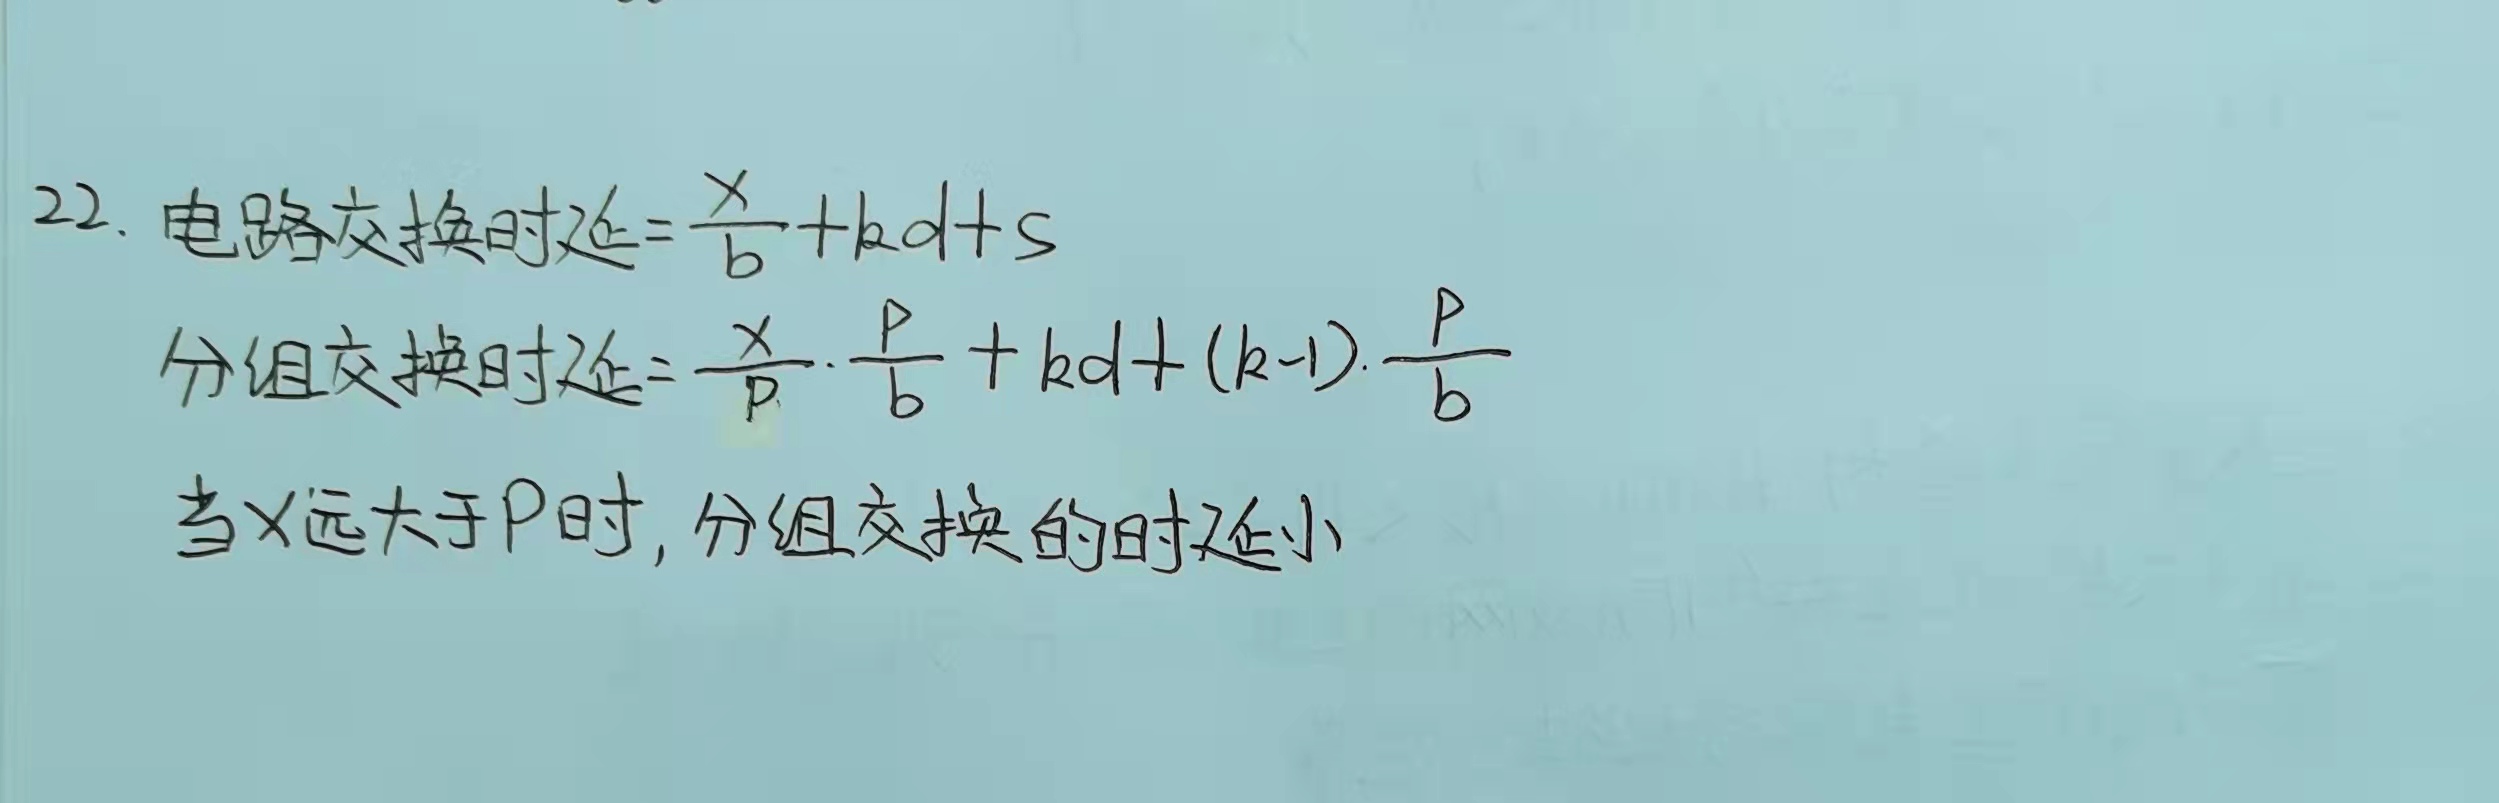 22. 电路交换时延=x/b+kd+s
分组交换时延=x/p·p/b+kd+(k-1)·p/b
当x远大于P时,分组交换的时延小